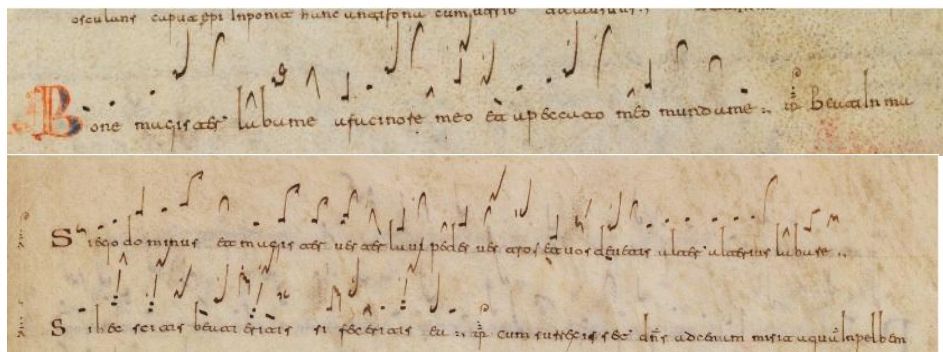 osculans caput epi Inponit hunc antifona cum
Bone magister laba me a facinore meo et a peccato meo munda me :. Beati In ma
Si ego dominus et magister uester laui pedes uros et uos debetis alter alterius labare :.
Si hec scitis beati eritis si feceritis ea :. cum surrexisset dns ad cenam misit aqua In pelbem